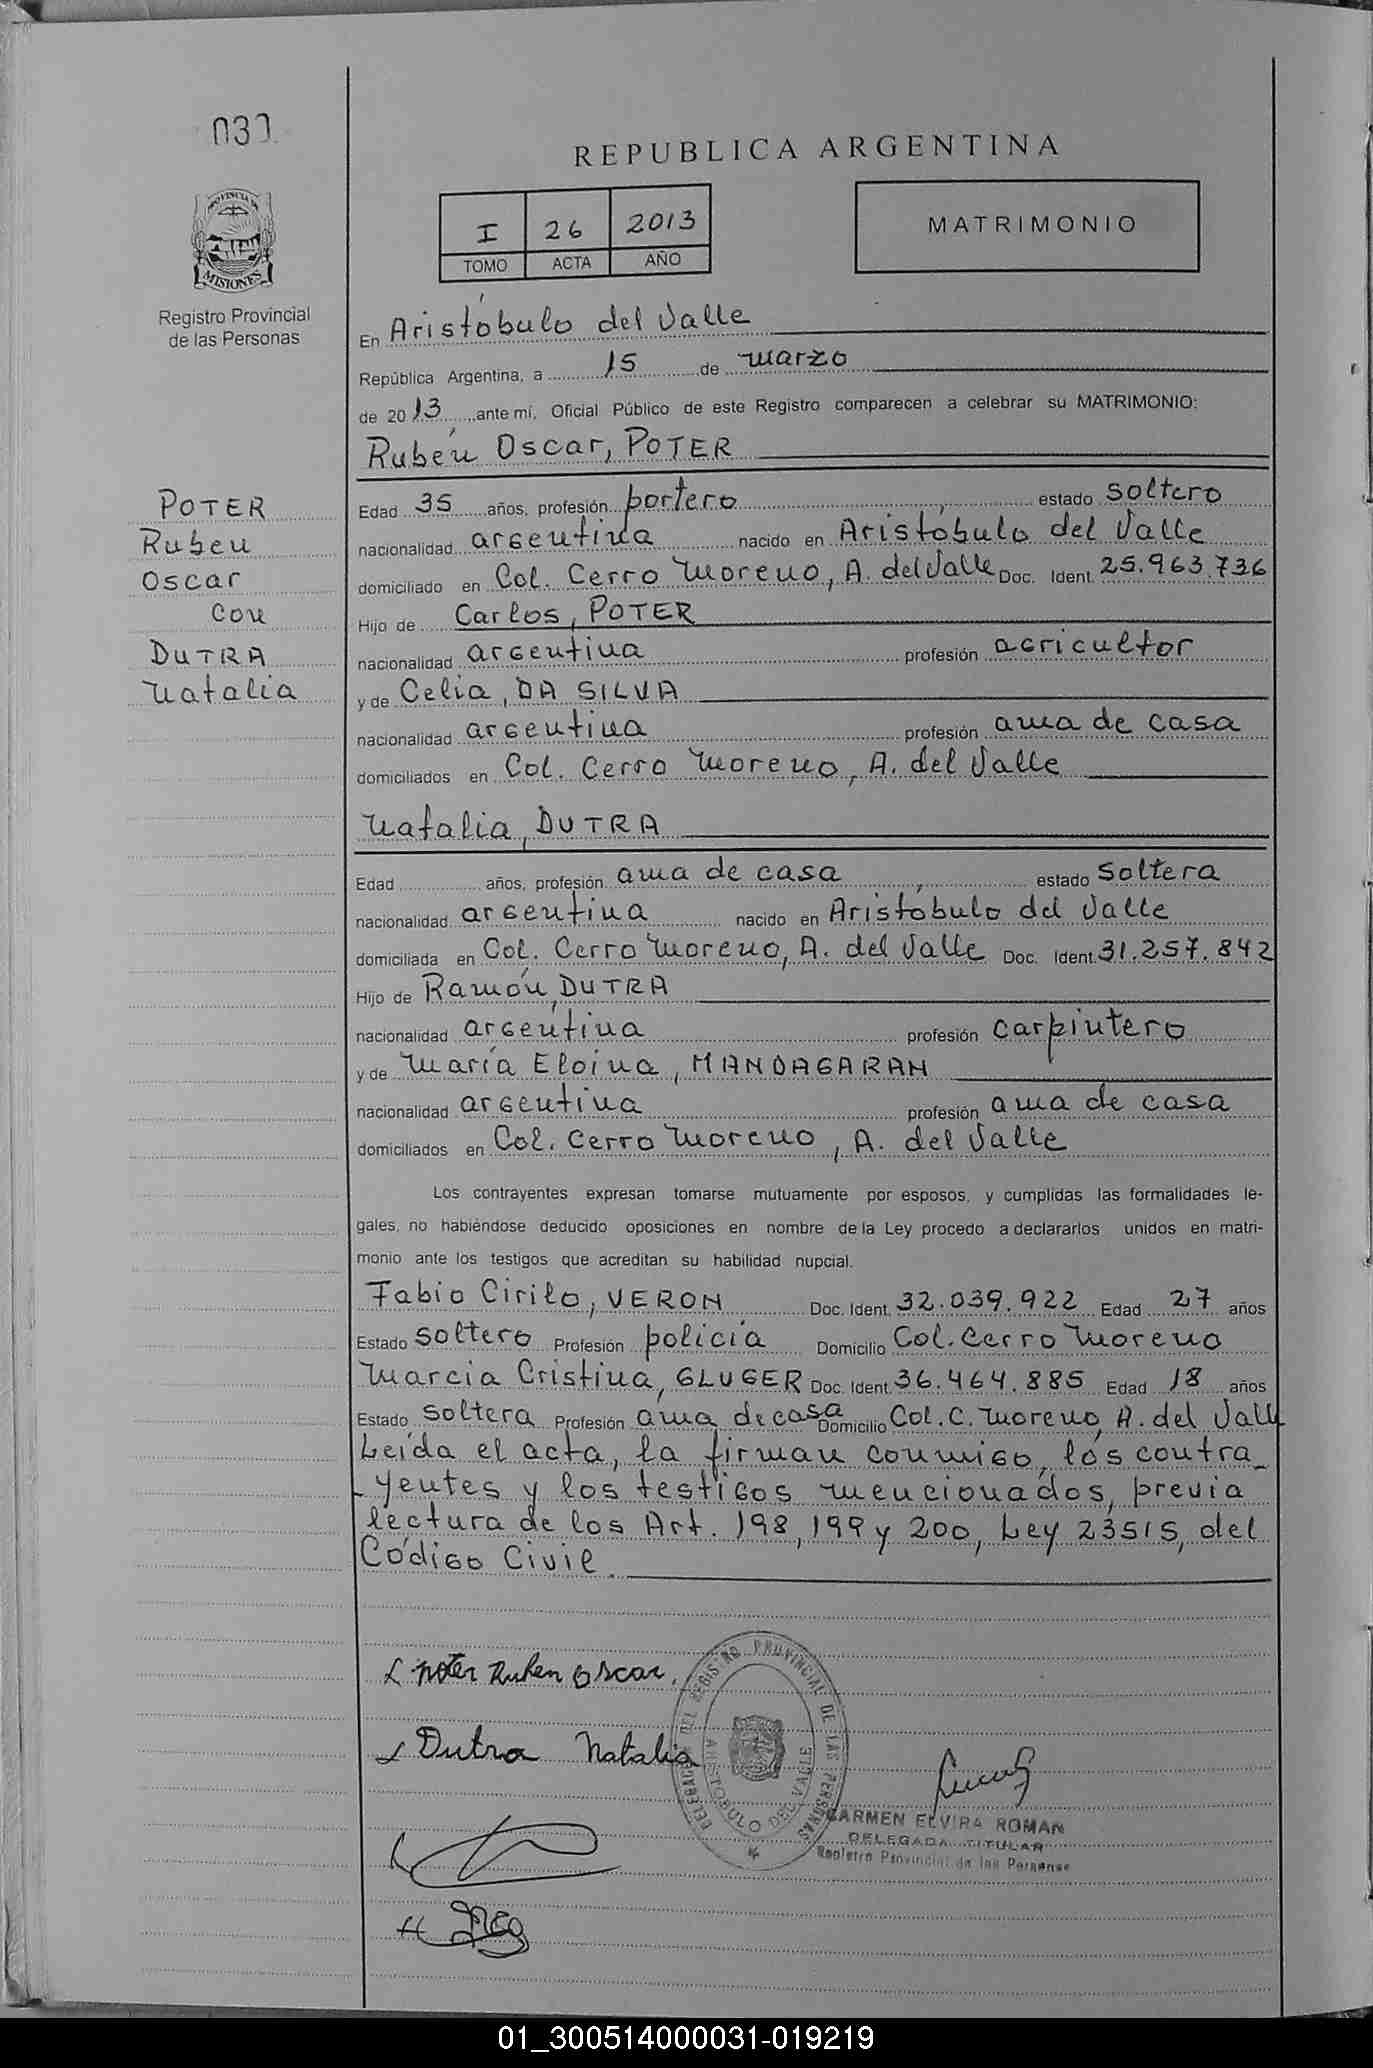 030
REPUBLICA ARGENTINA
I 26 2013
TOMO ACTA AÑO
MATRIMONIO
PROVINCIA DE
MISIONES
Registro Provincial
de las Personas
En Aristóbulo del Valle
República Argentina, a 15 de marzo
de 2013 ante mí, Oficial Público de este Registro comparecen a celebrar su MATRIMONIO:
Rubén Oscar, POTER
POTER
Ruben
Oscar
con
DUTRA
Natalia
Edad 35 años, profesión portero estado soltero
nacionalidad argentina nacido en Aristóbulo del Valle
domiciliado en Col. Cerro Moreno, A. del Valle Doc. Ident. 25.963.736
Hijo de Carlos, POTER
nacionalidad argentina profesión agricultor
y de Celia, DA SILVA
nacionalidad argentina profesión ama de casa
domiciliados en Col. Cerro Moreno, A. del Valle
Natalia, DUTRA
Edad años, profesión ama de casa estado soltera
nacionalidad argentina nacido en Aristóbulo del Valle
domiciliada en Col. Cerro Moreno, A. del Valle Doc. Ident. 31.257.842
Hijo de Ramón, DUTRA
nacionalidad argentina profesión carpintero
y de María Eloina, MANDAGARAN
nacionalidad argentina profesión ama de casa
domiciliados en Col. Cerro Moreno, A. del Valle
Los contrayentes expresan tomarse mutuamente por esposos, y cumplidas las formalidades le-
gales, no habiéndose deducido oposiciones en nombre de la Ley procedo a declararlos unidos en matri-
monio ante los testigos que acreditan su habilidad nupcial.
Fabio Cirilo, VERON Doc. Ident. 32.039.922 Edad 27 años
Estado soltero Profesión policía Domicilio Col. Cerro Moreno
Marcia Cristina, GLUGER Doc. Ident. 36.464.885 Edad 18 años
Estado soltera Profesión ama de casa Domicilio Col. C. Moreno, A. del Valle
Leída el acta, la firman conmigo, los contra_
_yentes y los testigos mencionados, previa
lectura de los Art. 198, 199 y 200, Ley 23515, del
Código Civil
Poter Ruben Oscar.
Dutra Natalia
DELEGACION DEL REGISTRO PROVINCIAL DE LAS PERSONAS
ARISTOBULO DEL VALLE
CARMEN ELVIRA ROMAN
DELEGADA TITULAR
Registro Provincial de las Personas
01_300514000031-019219